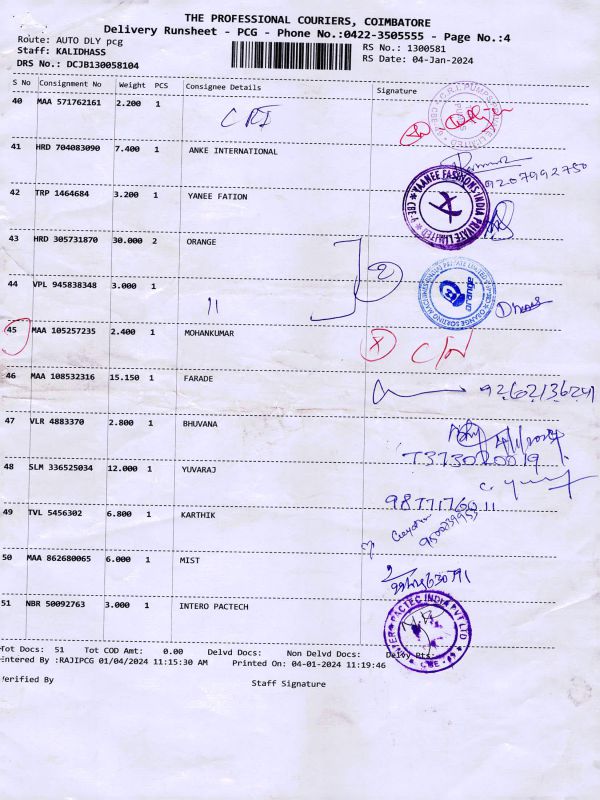 THE PROFESSIONAL COURIERS, COIMBATORE
Delivery Runsheet - PCG - Phone No.:0422-3505555 - Page No.:4
Route: AUTO DLY pcg
RS No.: 1300581
Staff: KALIDHASS
RS Date: 04-Jan-2024
DRS No.: DCJB130058104
S No Consignment No Weight PCS Consignee Details Signature
40 MAA 571762161 2.200 1 CRI
41 HRD 704083090 7.400 1 ANKE INTERNATIONAL
9207992750
42 TRP 1464684 3.200 1 YANEE FATION
VAANEE FASHIONS INDIA PRIVATE LIMITED
43 HRD 305731870 30.000 2 ORANGE
2
44 VPL 945838348 3.000 1 11
orange
45 MAA 105257235 2.400 1 MOHANKUMAR
46 MAA 108532316 15.150 1 FARADE
9262136241
47 VLR 4883370 2.800 1 BHUVANA
48 SLM 336525034 12.000 1 YUVARAJ
49 TVL 5456302 6.800 1 KARTHIK
50 MAA 862680065 6.000 1 MIST
51 NBR 50092763 3.000 1 INTERO PACTECH
PACTEC INDIA PVT LTD
CBE
Tot Docs: 51 Tot COD Amt: 0.00 Delvd Docs: Non Delvd Docs: Delvy Pts:
ntered By :RAJIPCG 01/04/2024 11:15:30 AM Printed On: 04-01-2024 11:19:46
erified By Staff Signature